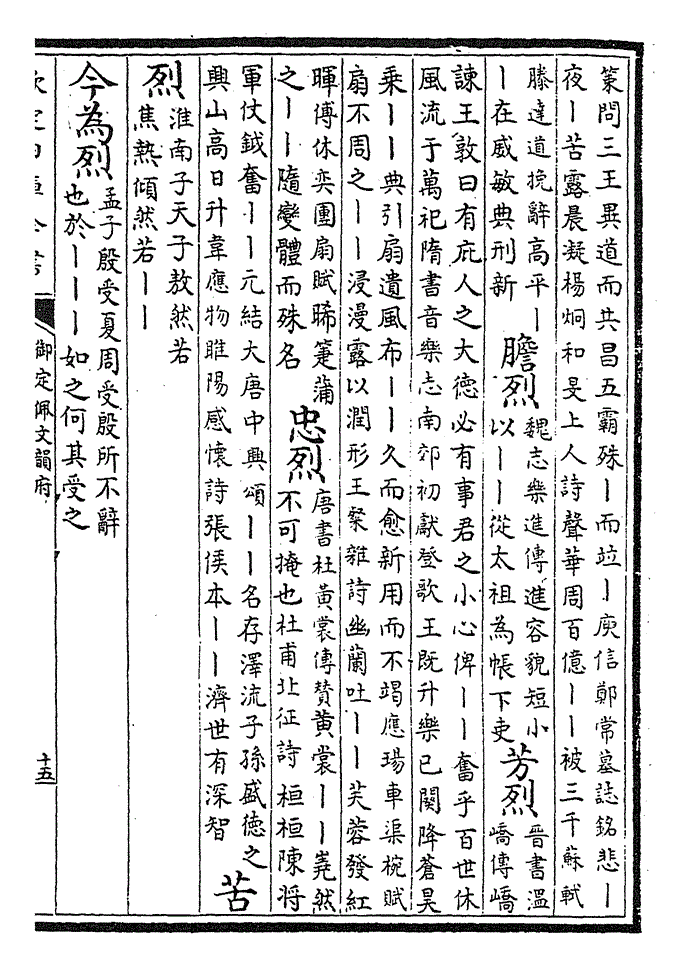 策問三王異道而共昌五霸殊丨而竝丨庾信鄭常墓誌銘悲丨
夜丨苦露晨凝楊烱和旻上人詩聲華周百億丨丨被三千蘇軾
滕達道挽辭高平丨
丨在威敏典刑新
膽烈
魏志樂進傳進容貌短小
以丨丨從太祖為帳下吏
芳烈
晉書溫
嶠傳嶠
諫王敦曰有庇人之大德必有事君之小心俾丨丨奮乎百世休
風流于萬祀隋書音樂志南郊初獻登歌王既升樂已闋降蒼昊
乘丨丨典引扇遺風布丨丨久而愈新用而不竭應瑒車渠椀賦
扇不周之丨丨浸漫露以潤形王粲雜詩幽蘭吐丨丨芙蓉發紅
暉傅休奕團扇賦晞蓂蒲
之丨丨隨變體而殊名
忠烈
唐書杜黃裳傳贊黃裳丨丨嶤然
不可掩也杜甫北征詩桓桓陳將
軍仗鉞奮丨丨元結大唐中興頌丨丨名存澤流子孫盛德之
興山高日升韋應物睢陽感懷詩張侯本丨丨濟世有深智
苦
烈
淮南子天子敖然若
焦熱傾然若丨丨
今為烈
孟子殷受夏周受殷所不辭
也於丨丨丨如之何其受之
欽定四庫全書
御定佩文韻府
十五